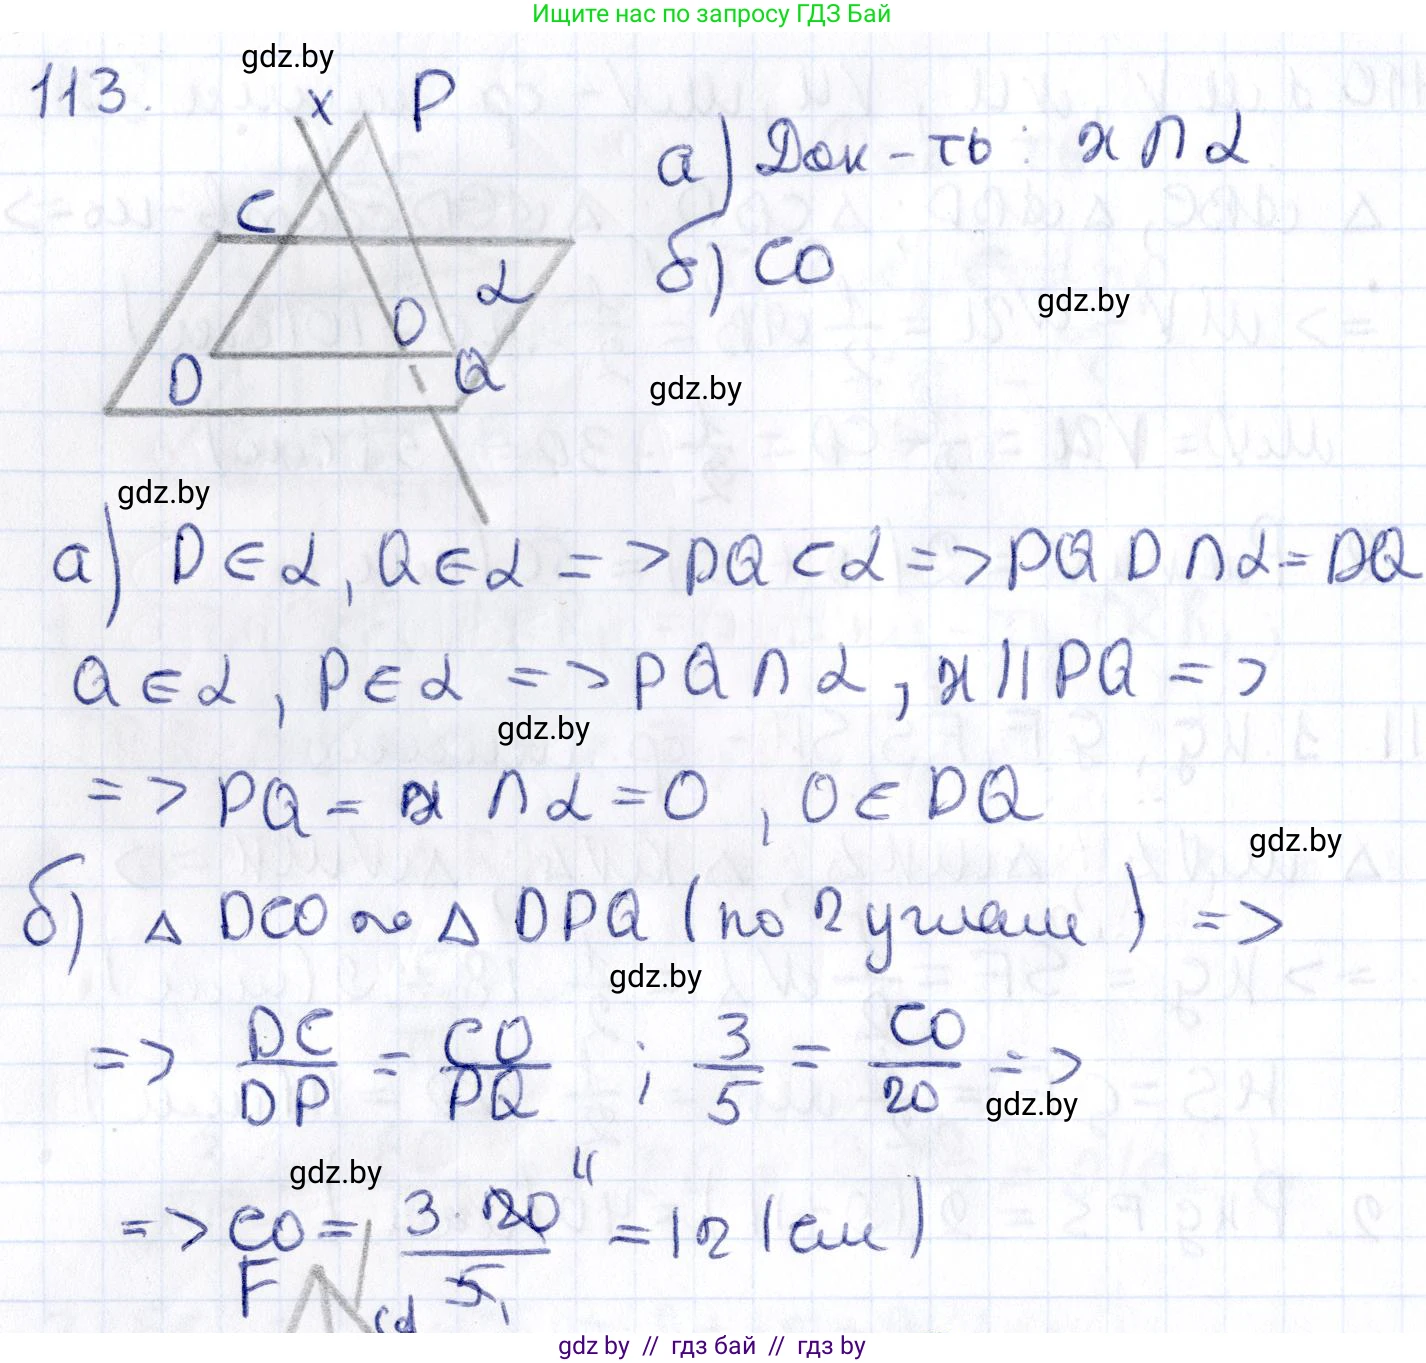 Ищите нас по запросу ГДЗ Бай
gdz.by
113.
x P
C
α
O
D
Q
а) Док-ть: x ∩ α
б) CO
gdz.by
gdz.by
gdz.by
а) D ∈ α, Q ∈ α => DQ ⊂ α => PQD ∩ α = DQ
Q ∈ α, P ∈ α => PQ ∩ α, x || PQ =>
gdz.by
=> PQ = x ∩ α = O, O ∈ DQ
gdz.by
б) △ DCO ~ △ DPQ (по 2 углам) =>
gdz.by
=> DC/DP = CO/PQ ; 3/5 = CO/20 =>
gdz.by
gdz.by
=> CO = 3·20/5 = 12 (см)
4
1
F
gdz by // гдз бай // гдз by